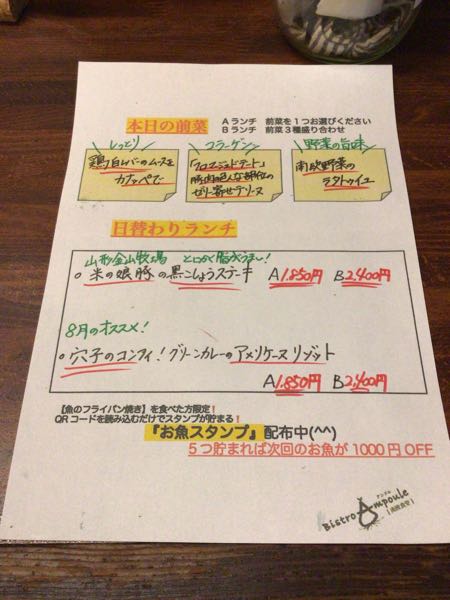 本日の前菜
Aランチ 前菜を1つお選びください
Bランチ 前菜3種盛り合わせ
しっとり
鶏白レバーのムースを
カナッペで
コラーゲン
「フロマージュドテート」
豚肉の色んな部位の
ゼリー寄せテリーヌ
野菜の旨味
南欧野菜の
ラタトゥイユ
日替わりランチ
山形金山牧場 とにかく脂がうまい!
○米の娘豚の黒こしょうステーキ A1.850円 B2.400円
8月のオススメ!
○穴子のコンフィ!グリーンカレーのアメリケーヌリゾット
A1.850円 B2,400円
【魚のフライパン焼き】を食べた方限定!
QRコードを読み込むだけでスタンプが貯まる!
『お魚スタンプ』配布中(^^)
5つ貯まれば次回のお魚が1000円OFF
アンプル
Bistro Ampoule